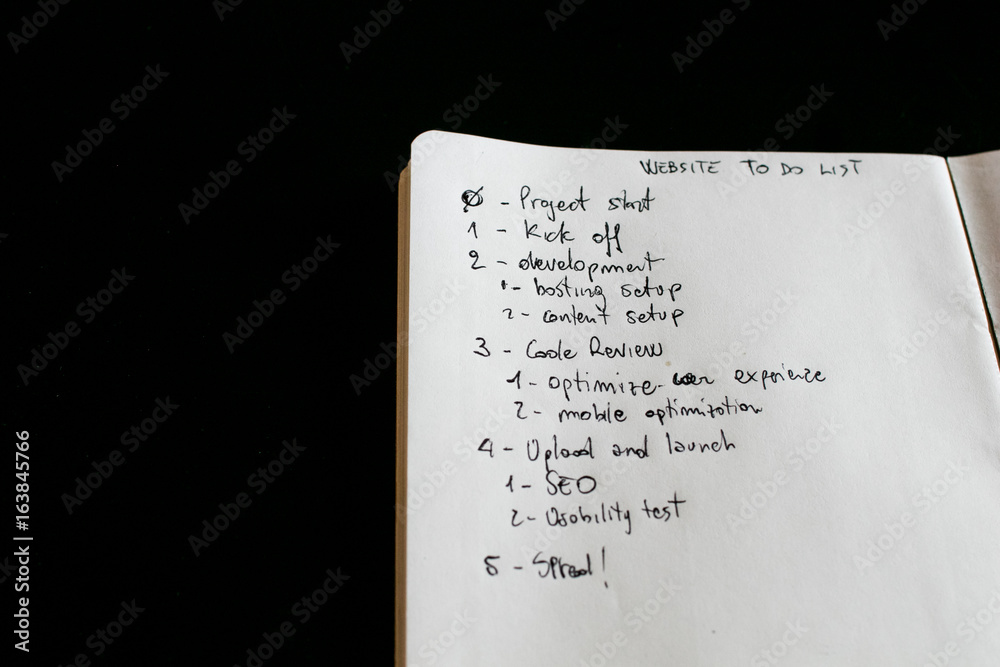 WEBSITE TO DO LIST
0 - Project start
1 - Kick off
2 - development
1 - hosting setup
2 - content setup
3 - Code Review
1 - optimize user experience
2 - mobile optimization
4 - Upload and launch
1 - SEO
2 - Usability test
5 - Spread!
Adobe Stock | #163845766